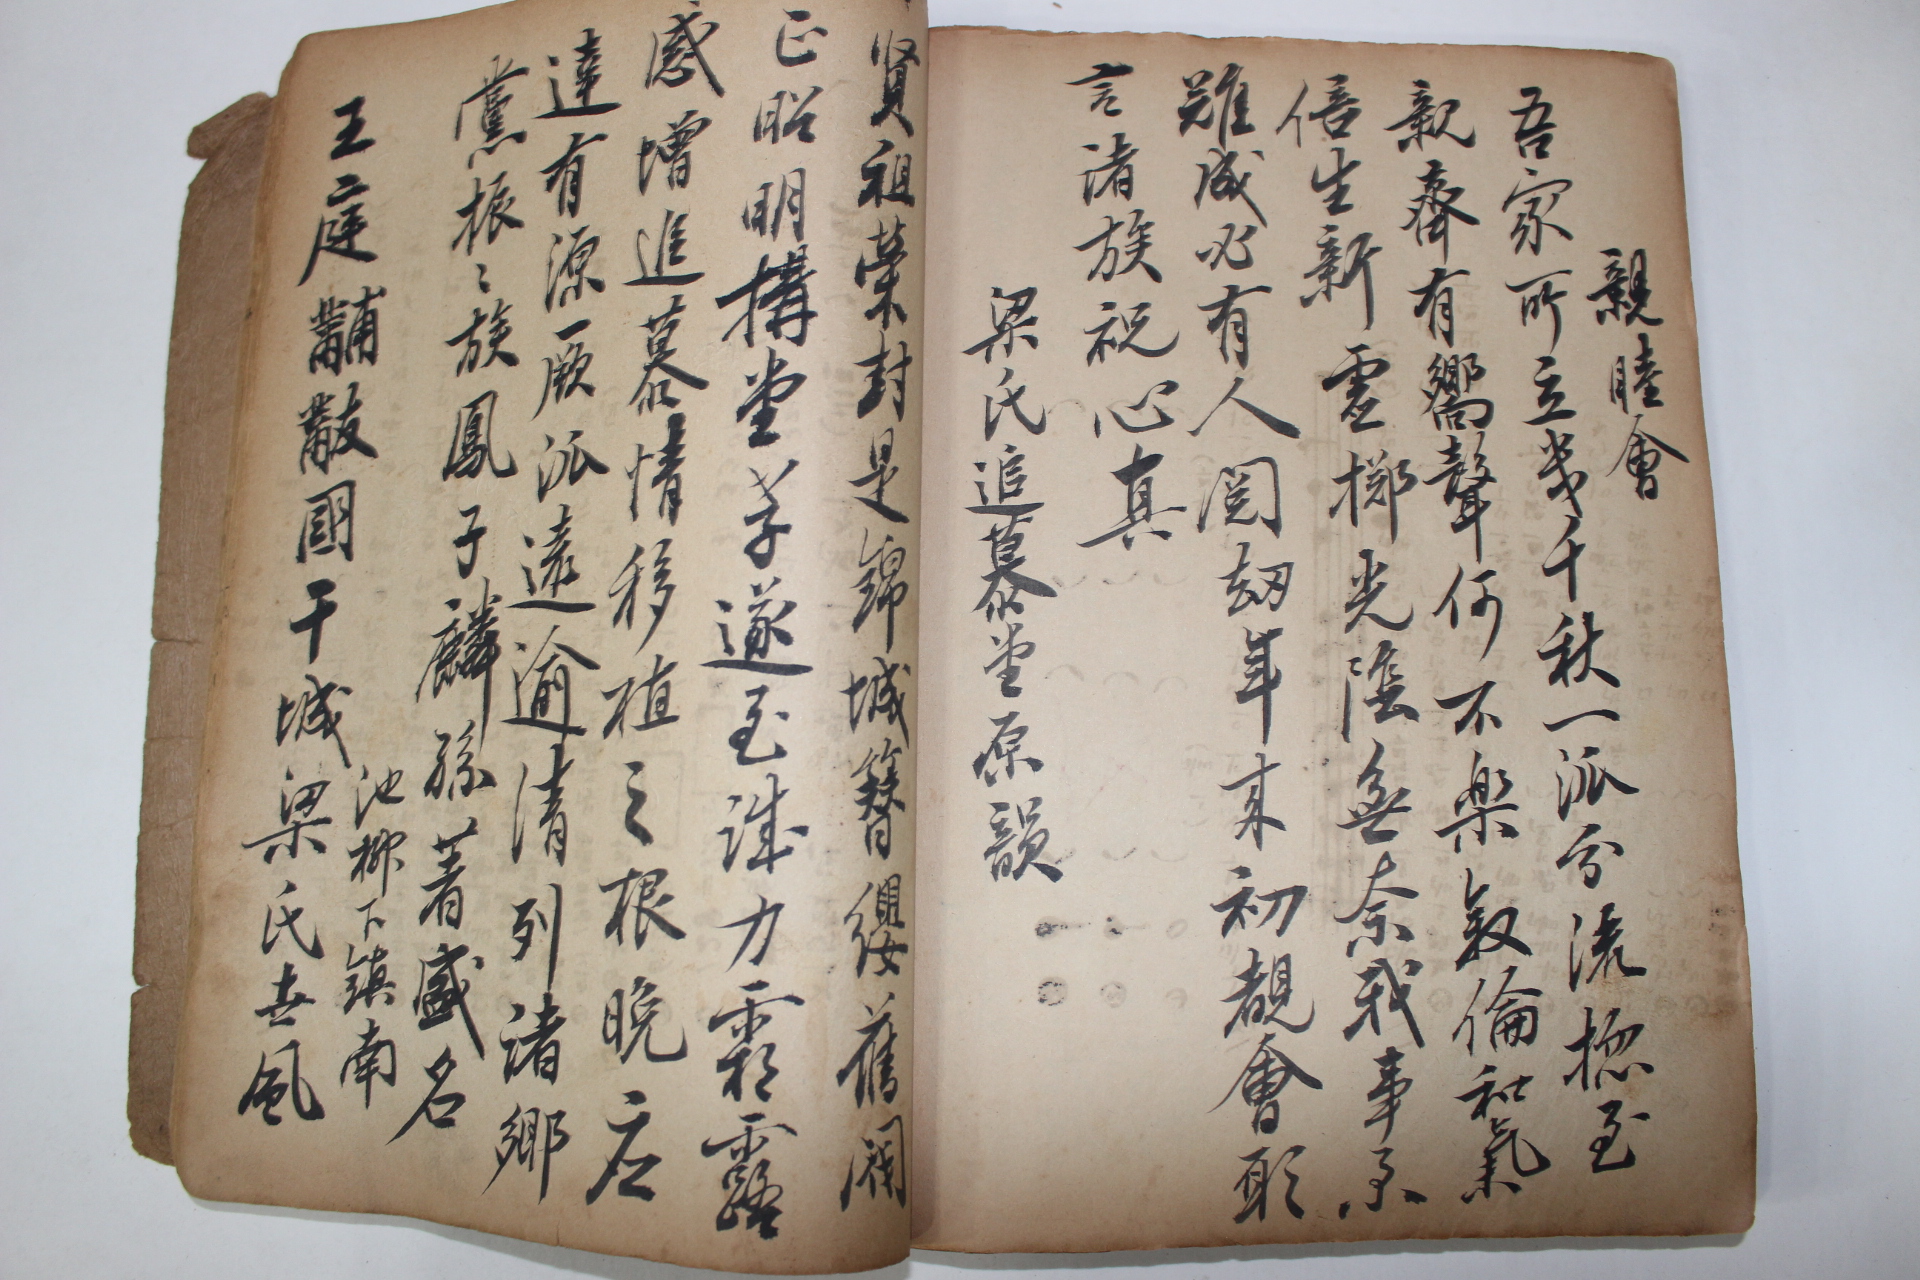 親睦會
吾家所立幾千秋一派分流揔至
親齊有嚮聲何不樂敘倫和氣
倍生新 虛擲光陰無奈我事系
難成必有人閱劫年來初覩會聊
言諸族祝心真
梁氏追慕堂原韻
賢祖榮封是錦城簪纓舊閥
正昭明搆堂孝遂至誠力霜露
感增追慕情移植之根晩应
達有源厥派遠逾清列諸鄉
黨振〻族鳳子麟孫著盛名
王庭黼黻國干城
池柳下鎮南
梁氏世風